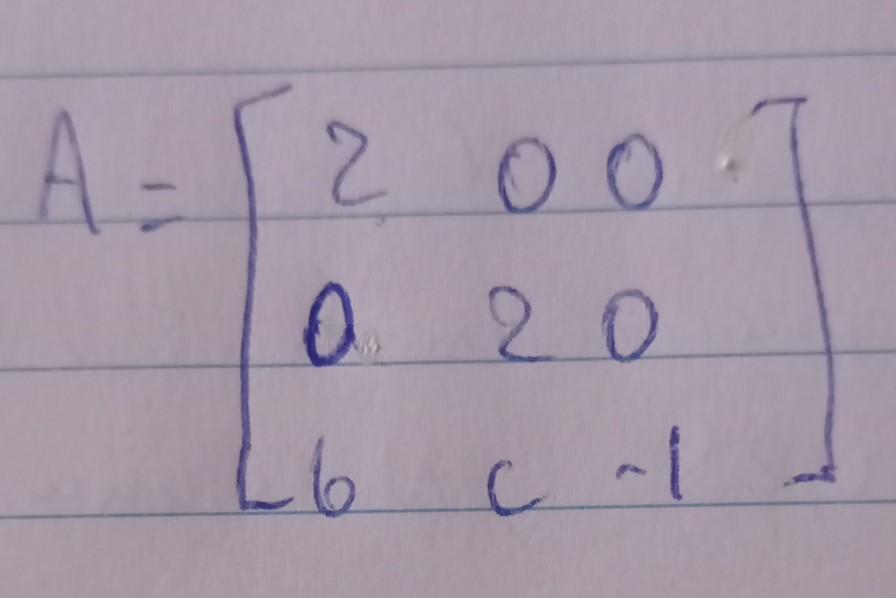 A = [ 2 0 0
0 2 0
b c -1 ]